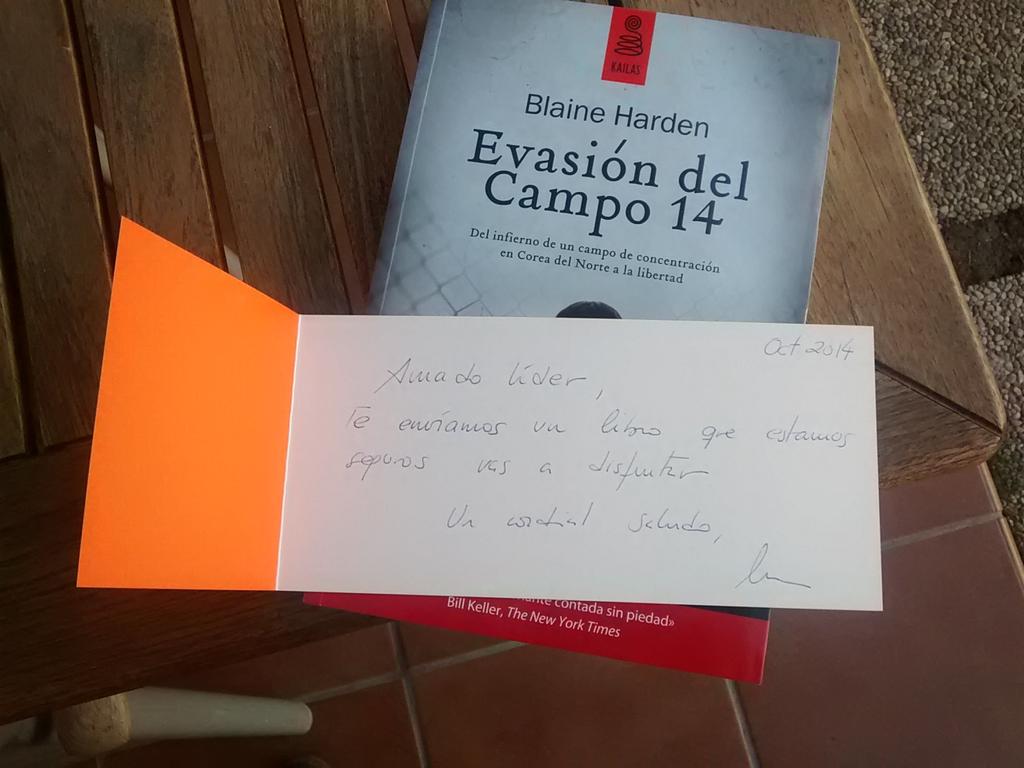 KAILAS
Blaine Harden
Evasión del
Campo 14
Del infierno de un campo de concentración
en Corea del Norte a la libertad
Oct 2014
Amado líder,
Te envíamos un libro que estamos
seguros vas a disfrutar
Un cordial saludo,
contada sin piedad»
Bill Keller, The New York Times